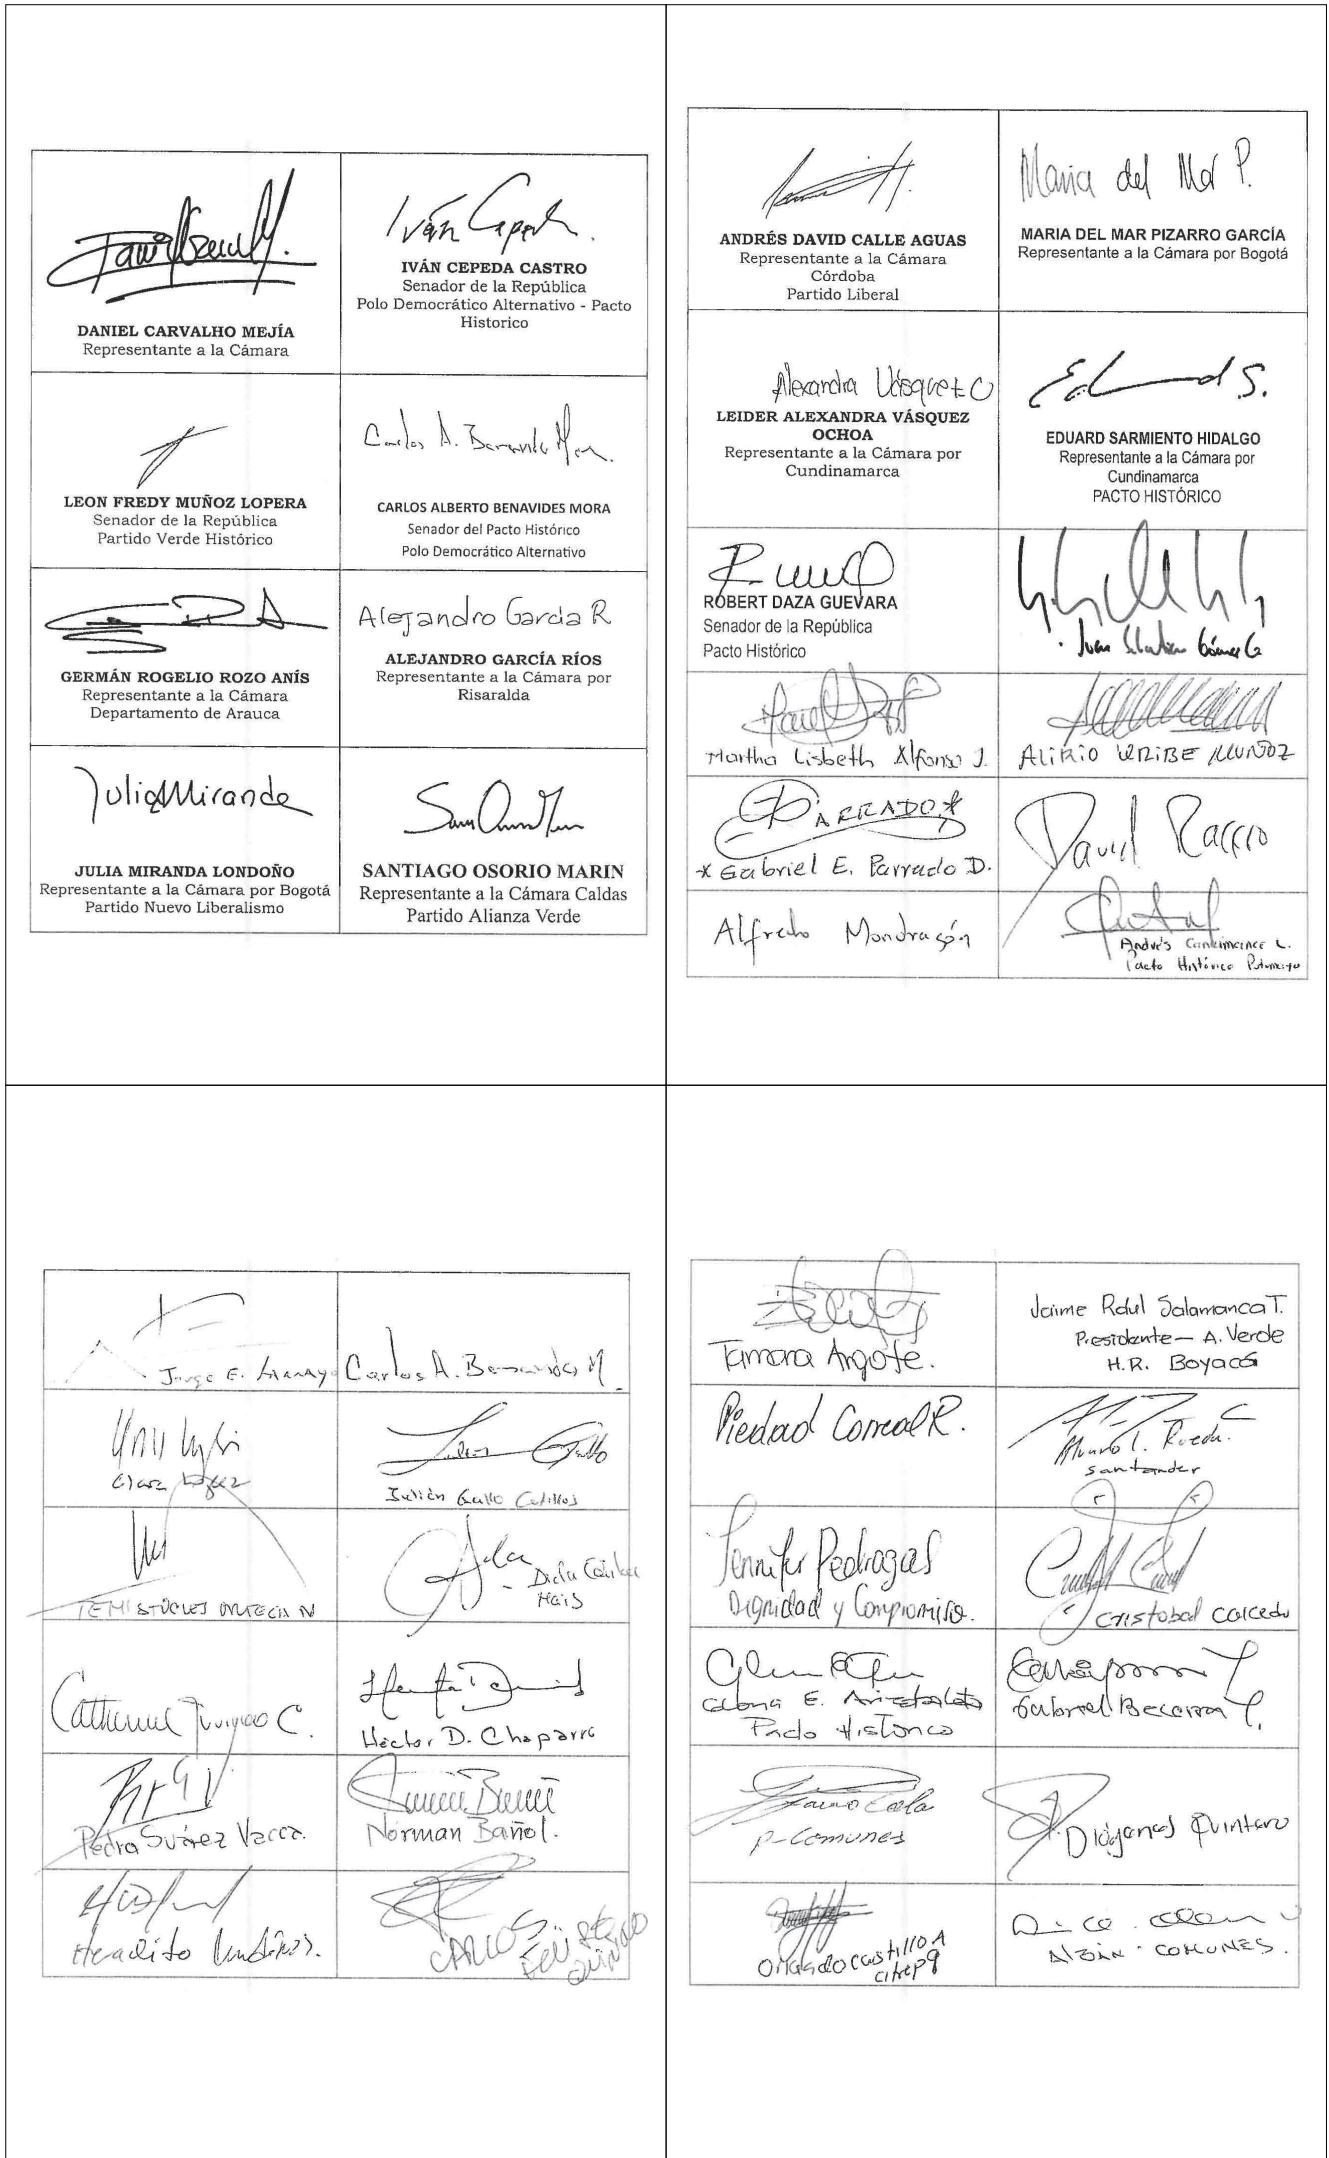 Iván Cepeda
DANIEL CARVALHO MEJÍA
Representante a la Cámara
IVÁN CEPEDA CASTRO
Senador de la República
Polo Democrático Alternativo - Pacto
Historico
LEON FREDY MUÑOZ LOPERA
Senador de la República
Partido Verde Histórico
Carlos A. Benavides Mora
CARLOS ALBERTO BENAVIDES MORA
Senador del Pacto Histórico
Polo Democrático Alternativo
GERMÁN ROGELIO ROZO ANÍS
Representante a la Cámara
Departamento de Arauca
Alejandro García R
ALEJANDRO GARCÍA RÍOS
Representante a la Cámara por
Risaralda
Julia Miranda
JULIA MIRANDA LONDOÑO
Representante a la Cámara por Bogotá
Partido Nuevo Liberalismo
SANTIAGO OSORIO MARIN
Representante a la Cámara Caldas
Partido Alianza Verde
ANDRÉS DAVID CALLE AGUAS
Representante a la Cámara
Córdoba
Partido Liberal
Maria del Mar P.
MARIA DEL MAR PIZARRO GARCÍA
Representante a la Cámara por Bogotá
Alexandra Vásquez O
LEIDER ALEXANDRA VÁSQUEZ
OCHOA
Representante a la Cámara por
Cundinamarca
Eduard S.
EDUARD SARMIENTO HIDALGO
Representante a la Cámara por
Cundinamarca
PACTO HISTÓRICO
ROBERT DAZA GUEVARA
Senador de la República
Pacto Histórico
Juan Sebastian Gómez G
Martha Lisbeth Alfonso J.
ALIRIO URIBE MUÑOZ
PARRADO
Gabriel E. Parrado D.
David Racero
Alfredo Mondragón
Andrés Cancimance L.
Pacto Histórico Putumayo
Jorge E.
Carlos A. Benavides M
Clara López
Julián Gallo Cubillos
TEMISTOCLES ORTEGA N
Dida
Mais
Catherine Juvinao C.
Héctor D. Chaparro
Pedro Suárez Vacca.
Norman Bañol.
Heraclito Landinez.
CARLOS
FELIPE
QUINTERO
Tamara Argote.
Jaime Raúl Salamanca T.
Presidente - A. Verde
H.R. Boyacá
Piedad Correal R.
Alvaro L. Rueda.
Santander
Jennifer Pedraza S
Dignidad y Compromiso.
Cristobal Caicedo
Gloria E. Arizabaleta
Pacto Histórico
Gabriel Becerra Y.
Jairo Cala
P-Comunes
Diógenes Quintero
Orlando Castillo A
citrep 9
Alban
COMUNES.